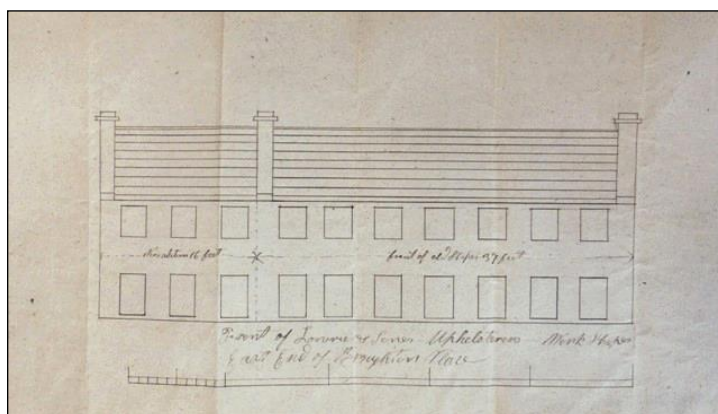 New addition 16 feet front of old Shops 37 feet
Front of Lowrie & Sones Upholsterers Work Shopes
East End of Broughton Place